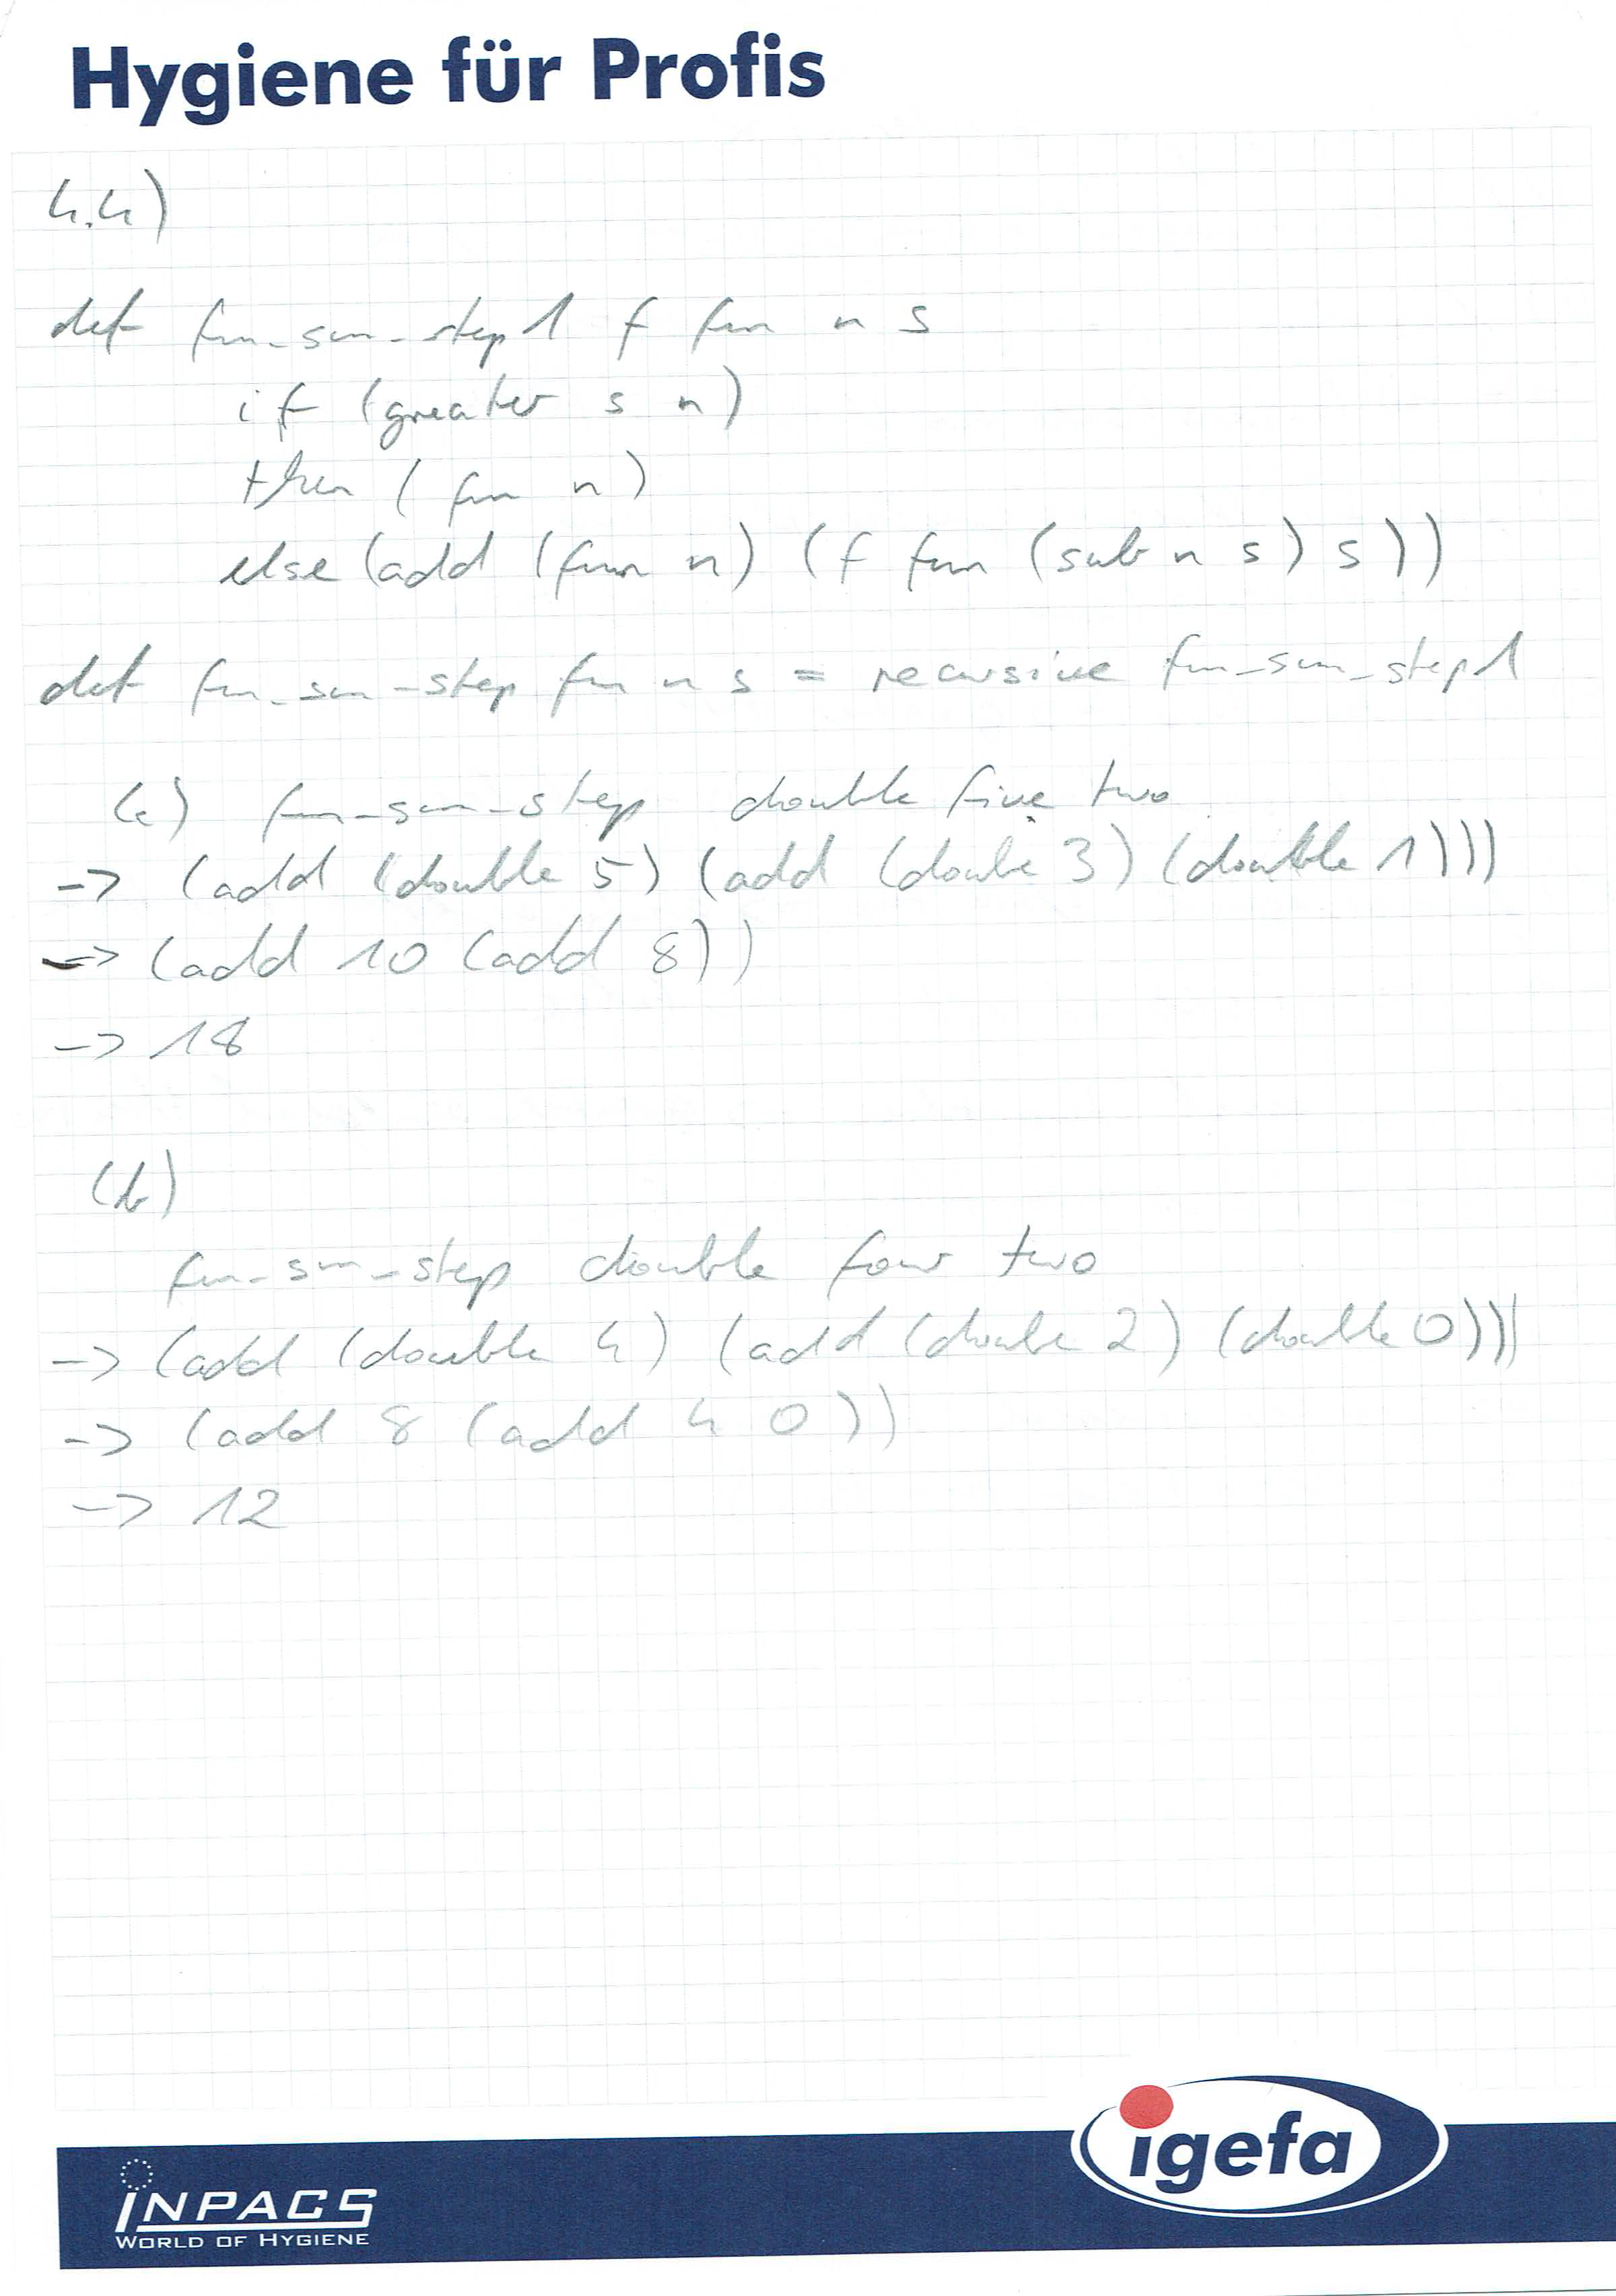 Hygiene für Profis
4.4)
def fun_sum_step1 f fun n s
if (greater s n)
then (fun n)
else (add (fun n) (f fun (sub n s) s))
def fun_sum_step fun n s = recursive fun_sum_step1
(a) fun_sum_step double five two
-> (add (double 5) (add (double 3) (double 1)))
-> (add 10 (add 8))
-> 18
(b)
fun_sum_step double four two
-> (add (double 4) (add (double 2) (double 0)))
-> (add 8 (add 4 0))
-> 12
igefa
INPACS
WORLD OF HYGIENE